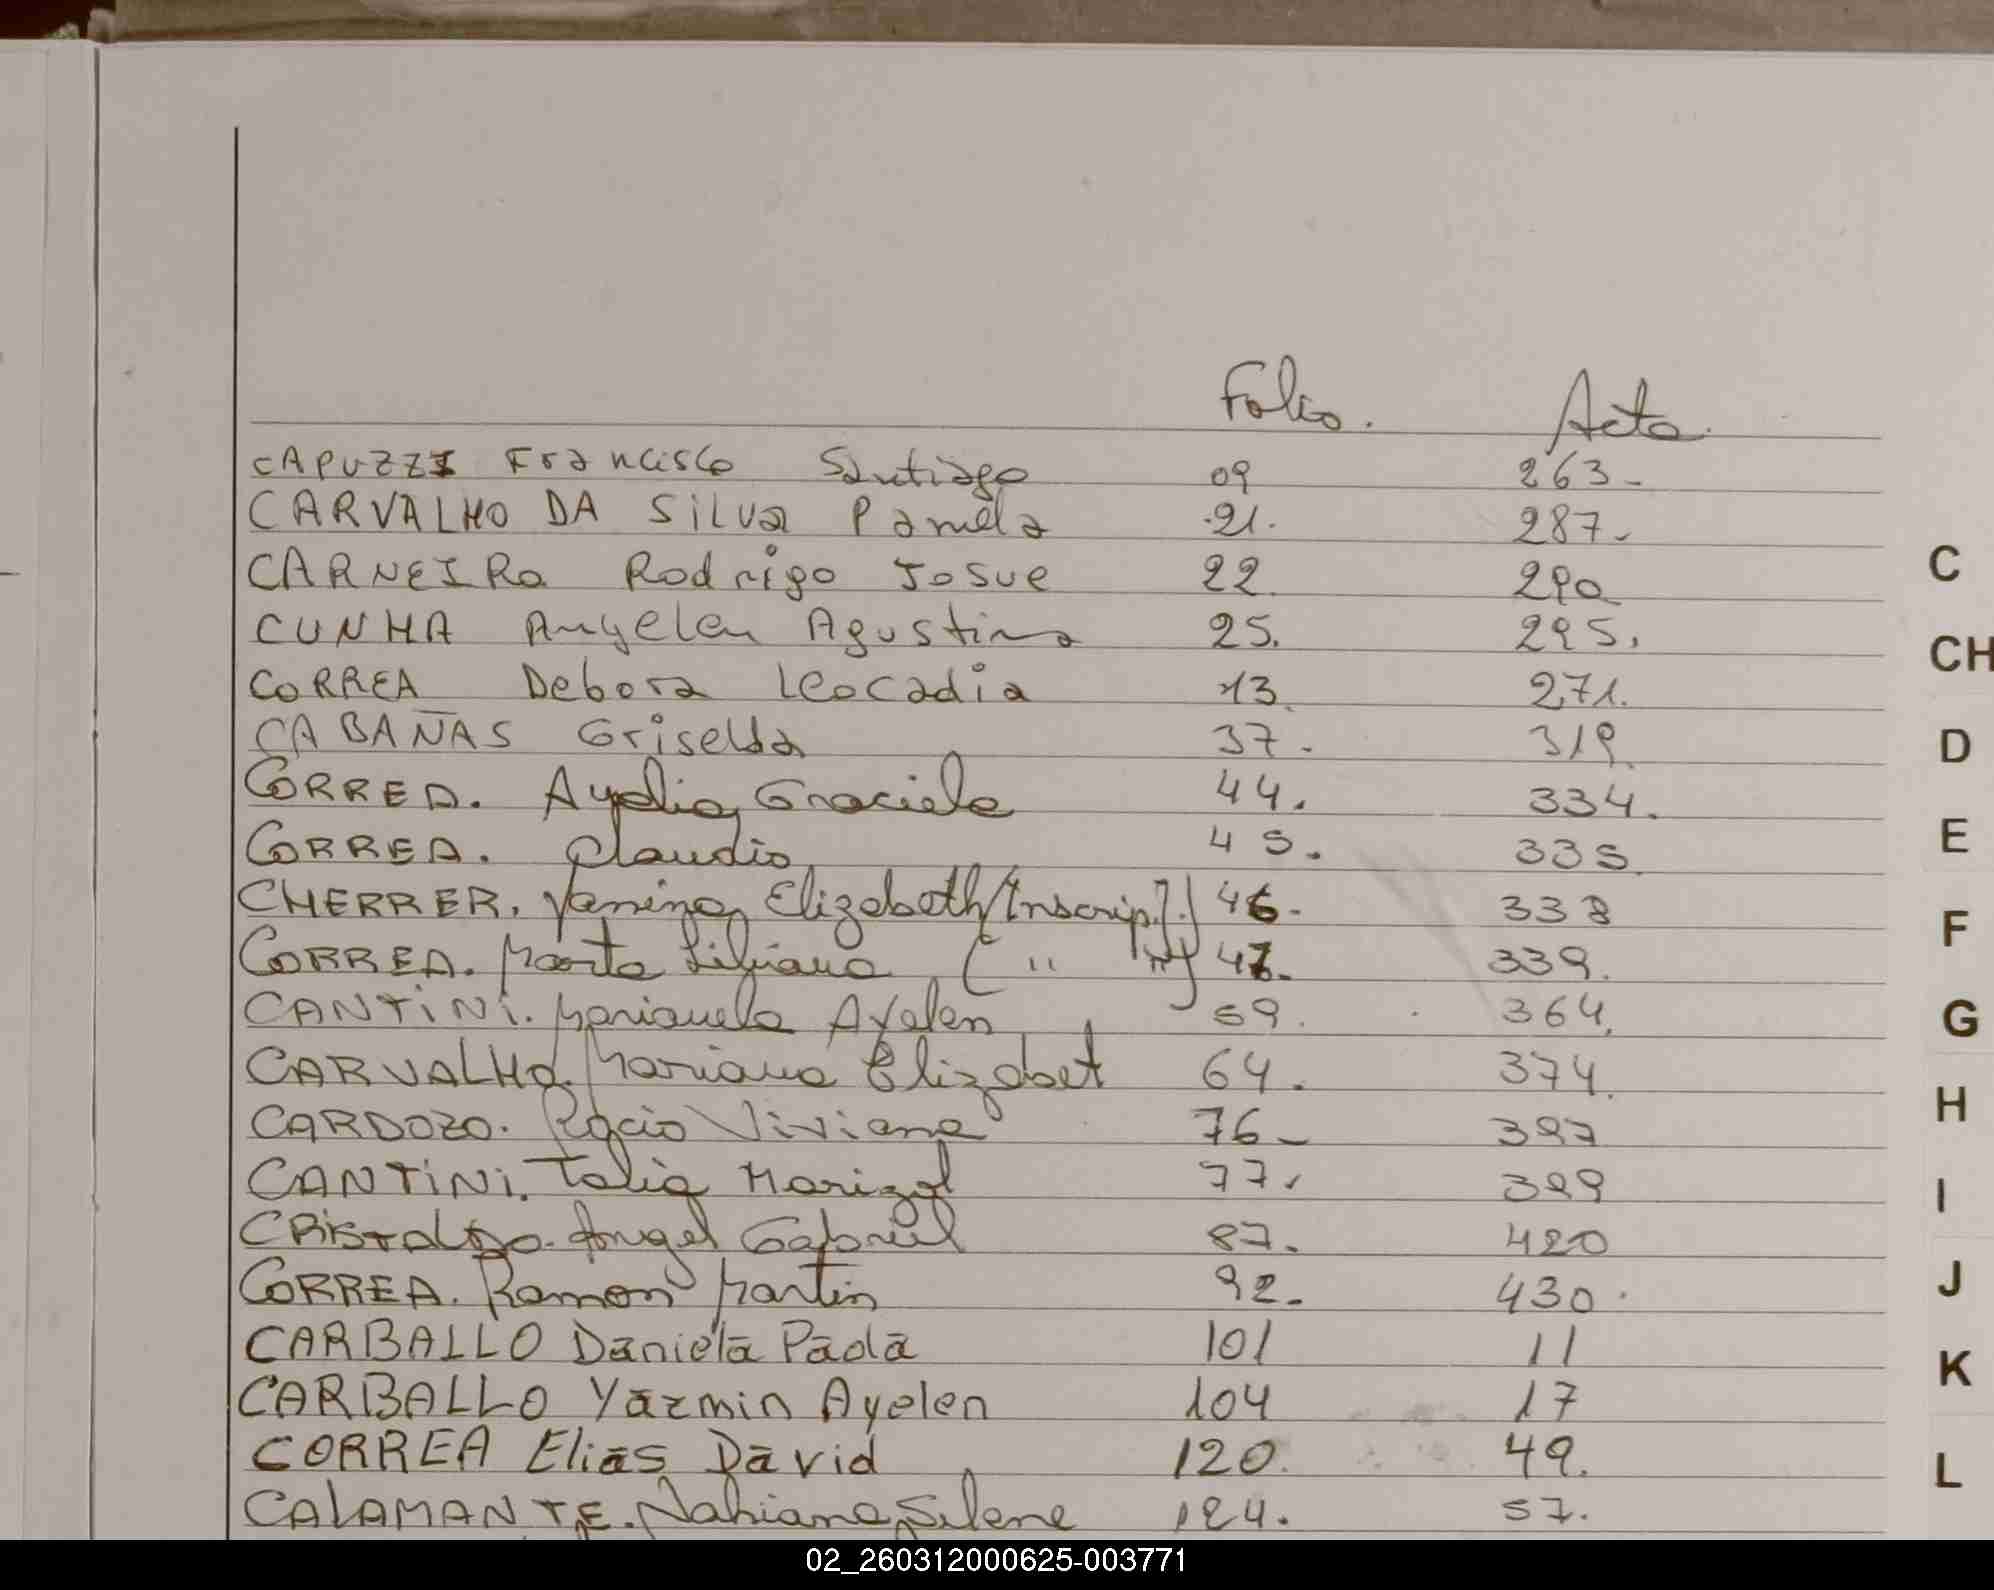 Folio. Acta.
CAPUZZI Francisco Santiago 09 263-
CARVALHO DA SiLva Pamela 21. 287-
CARNEIRo Rodrigo Josue 22. 290
CUNHA Anyelen Agustina 25. 295.
CORREA Debora Leocadia 13. 271.
CABAÑAS Griselda 37. 319.
CORREA. Ayelia Graciela 44. 334.
CORREA. Claudio 45. 335.
CHERRER. Yanina Elizabeth (Inscrip.T.) 46- 338
CORREA. Marta Liliana ( " ") 47- 339.
CANTiNi. Marianela Ayelen 59. 364.
CARVALHO. Mariana Elizabet 64. 374.
CARDOZO. Rocio Viviana 76- 397
CANTiNi. Talia Marizol 77. 399
CRISTALDO. Angel Gabriel 87. 420
CORREA. Ramon Martin 92- 430.
CARBALLO Daniela Paola 101 11
CARBALLO Yazmin Ayelen 104 17
CORREA Elias David 120. 49.
CALAMANTE. Nahiana Silene 124. 57.
C
CH
D
E
F
G
H
I
J
K
L
02_260312000625-003771